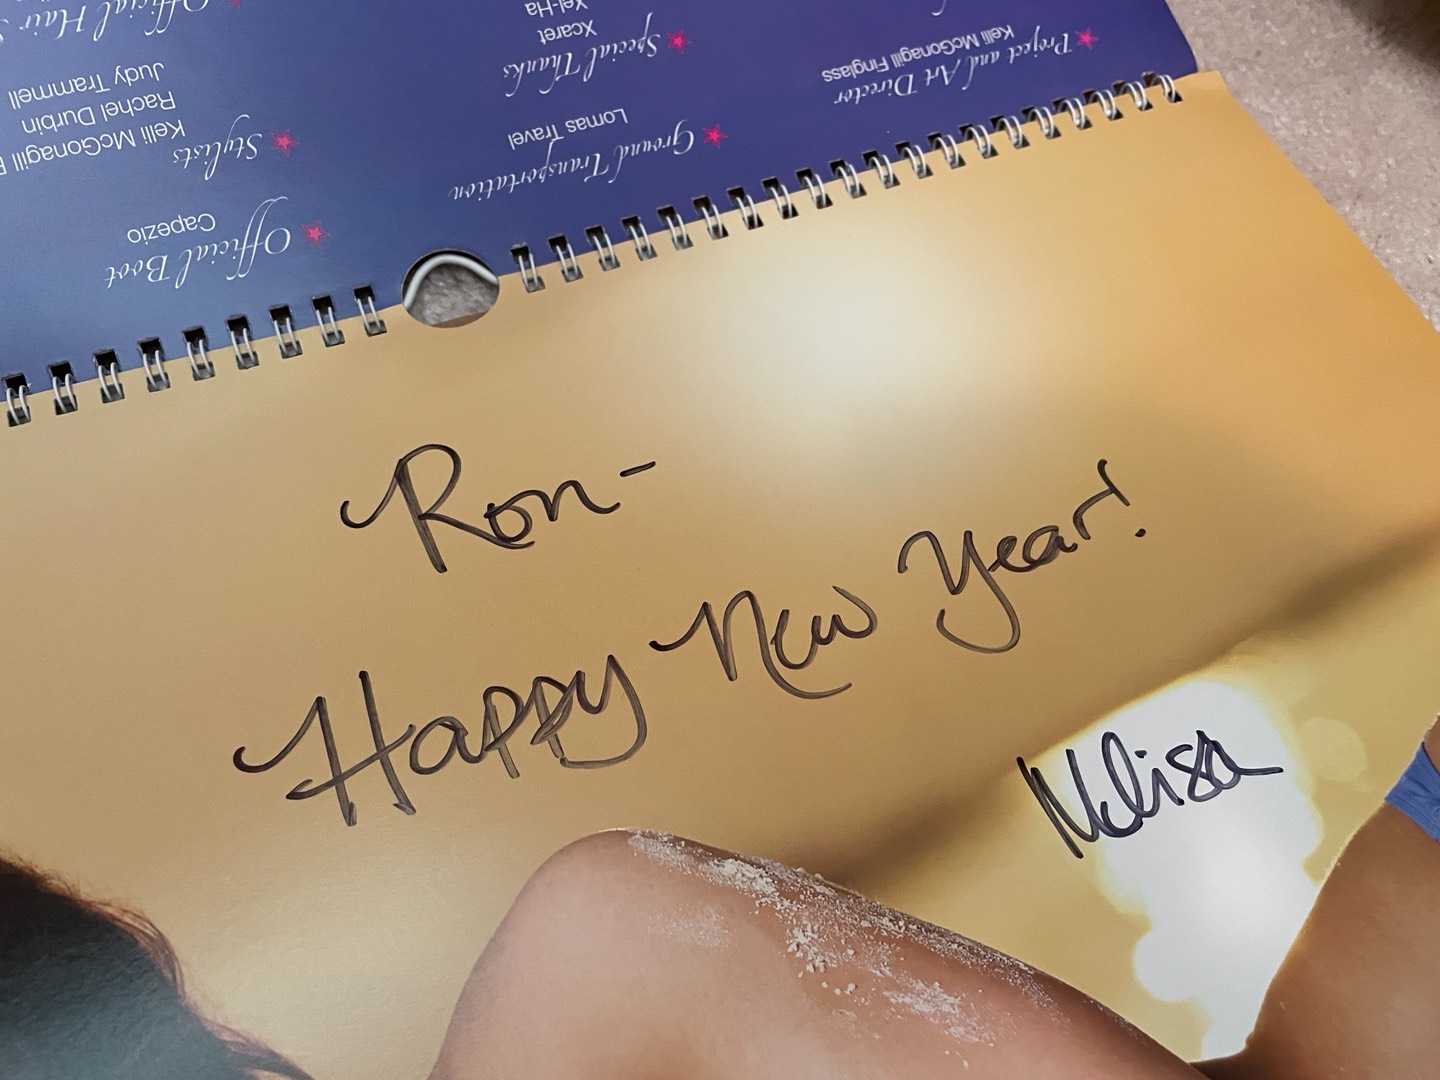 Official Hair
Judy Trammell
Rachel Durbin
Kelli McGonagill F
Stylists
Capezio
Official Boot
Xel-Ha
Xcaret
Special Thanks
Lomas Travel
Ground Transportation
Kelli McGonagill Finglass
Project and Art Director
Ron-
Happy New Year!
Melisa